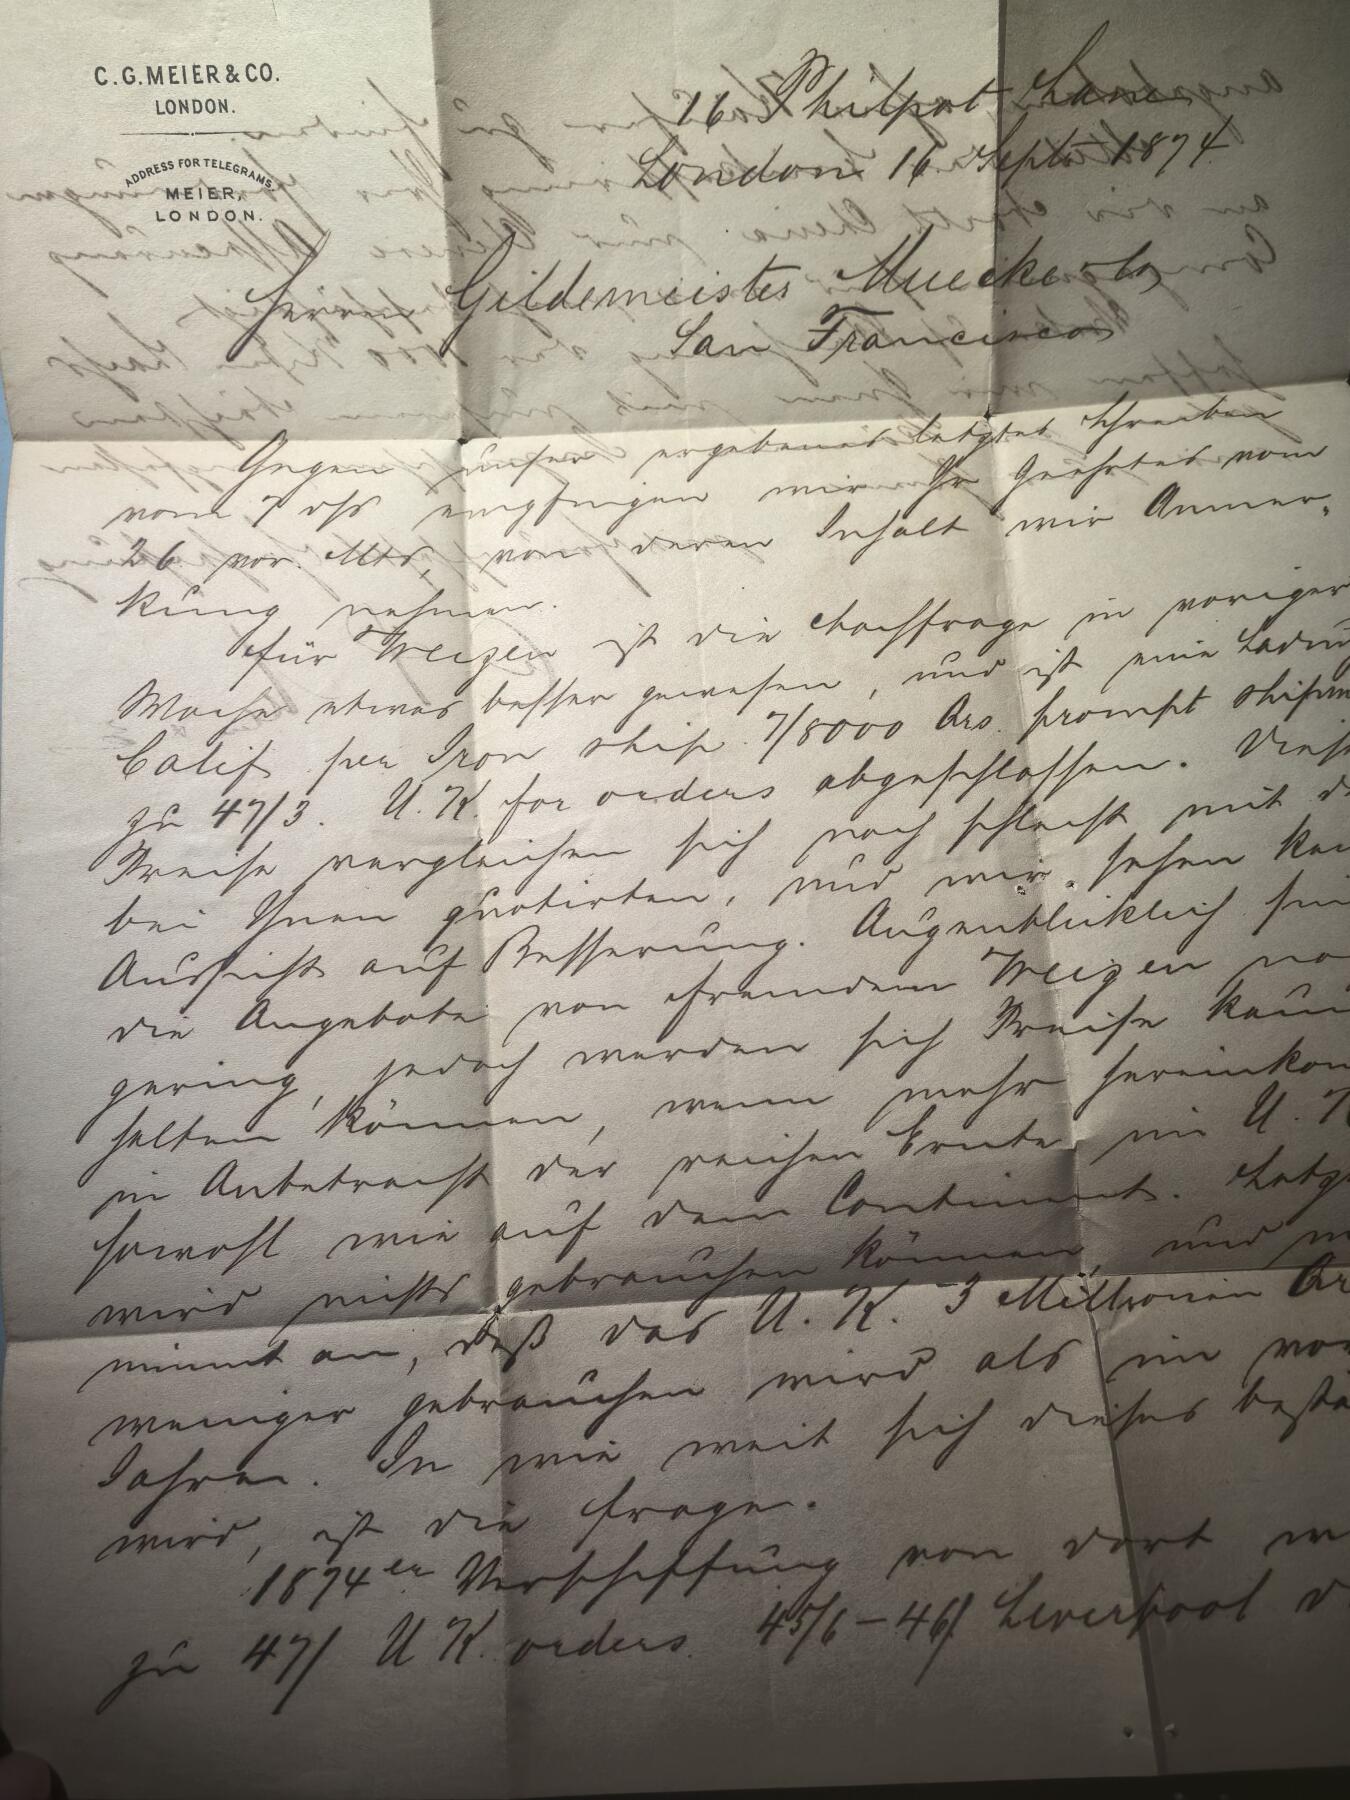 C. G. MEIER & CO.
LONDON.
ADDRESS FOR TELEGRAMS.
MEIER,
LONDON.
16 Philpot Lane
London 16 Septr 1874
Herren Gildemeister Muecke & Co,
San Francisco
Gegen unser ergebenes letztes Schreiben
vom 7 ds empfingen wir Ihr Geehrtes vom
26 vor. Mts, von deren Inhalt wir Anmer-
kung nehmen.
Für Weizen ist die Nachfrage in voriger
Woche etwas besser gewesen, und ist eine
Calif per Iron ship 7/8000 Qrs. prompt
zu 47/3. U. K. for orders abgeschlossen.
Preise vergleichen sich noch schlecht mit
bei Ihnen quotirten, und wir sehen
Aussicht auf Besserung. Augenblicklich
die Angebote von fremdem Weizen
gering, jedoch werden sich Preise
halten können, wenn mehr
in Anbetracht der reichen Ernte im U. K
sowohl wie auf dem Continent.
wird nichts gebrauchen können, und
nimmt an, daß das U. K. 3 Millionen Qr
weniger gebrauchen wird als in
Jahren. In wie weit sich dieses
wird, ist die Frage.
1874er Verschiffung von dort
zu 47/ U K. orders. 45/6 – 46/ Liverpool